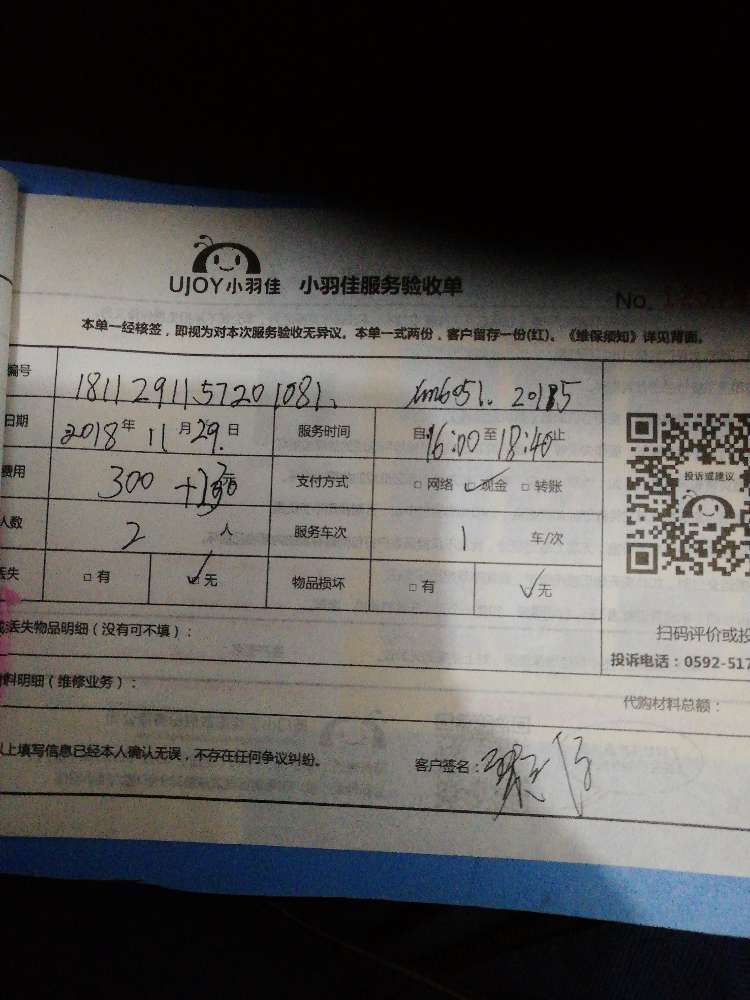 UJOY小羽佳 小羽佳服务验收单
No.
本单一经核签，即视为对本次服务验收无异议。本单一式两份，客户留存一份(红)。《维保须知》详见背面。
编号 1811291157201081
日期 2018年11月29日 服务时间 自16:00至18:40止
费用 300 支付方式 □网络 ☑现金 □转账
人数 2 人 服务车次 1 车/次
丢失 □有 ☑无 物品损坏 □有 ☑无
投诉或建议
丢失物品明细（没有可不填）：
扫码评价或投
投诉电话：0592-517
料明细（维修业务）：
代购材料总额：
以上填写信息已经本人确认无误，不存在任何争议纠纷。 客户签名：